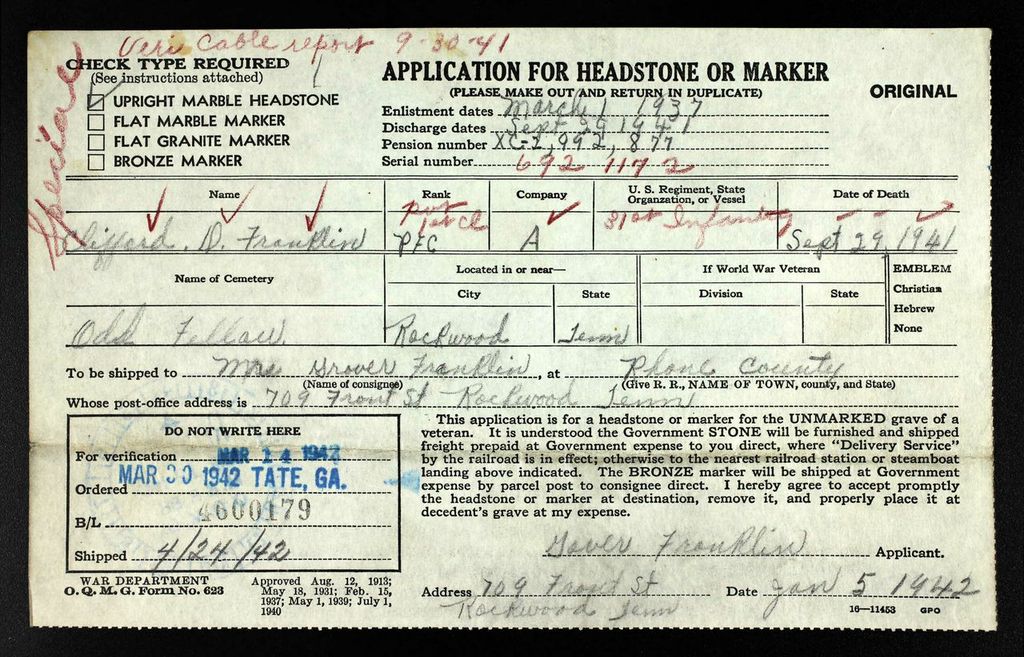 Veri Cable report 9-30-41
Special
CHECK TYPE REQUIRED
(See instructions attached)
UPRIGHT MARBLE HEADSTONE
FLAT MARBLE MARKER
FLAT GRANITE MARKER
BRONZE MARKER
APPLICATION FOR HEADSTONE OR MARKER
(PLEASE MAKE OUT AND RETURN IN DUPLICATE)
ORIGINAL
Enlistment dates March 1 1937
Discharge dates Sept 29 1941
Pension number XC-2,992,877
Serial number 692 1172
Name Rank Company U. S. Regiment, State Organzation, or Vessel Date of Death
1st Cl
Clifford. D. Franklin PFC A 31st Infantry Sept 29, 1941
Name of Cemetery Located in or near— If World War Veteran EMBLEM
City State Division State Christian
Hebrew
None
Odd Fellow Rockwood Tenn
To be shipped to Mrs Grover Franklin, at Rhone County
(Name of consignee) (Give R. R., NAME OF TOWN, county, and State)
Whose post-office address is 709 Front St Rockwood Tenn
DO NOT WRITE HERE
For verification MAR 14 1942
MAR 30 1942 TATE, GA.
Ordered
4600179
B/L
Shipped 4/24/42
This application is for a headstone or marker for the UNMARKED grave of a
veteran. It is understood the Government STONE will be furnished and shipped
freight prepaid at Government expense to you direct, where "Delivery Service"
by the railroad is in effect; otherwise to the nearest railroad station or steamboat
landing above indicated. The BRONZE marker will be shipped at Government
expense by parcel post to consignee direct. I hereby agree to accept promptly
the headstone or marker at destination, remove it, and properly place it at
decedent's grave at my expense.
Gover Franklin Applicant.
Address 709 Front St Date Jan 5 1942
Rockwood Tenn
WAR DEPARTMENT
O. Q. M. G. Form No. 623
Approved Aug. 12, 1913;
May 18, 1931; Feb. 15,
1937; May 1, 1939; July 1,
1940
16—11453 GPO